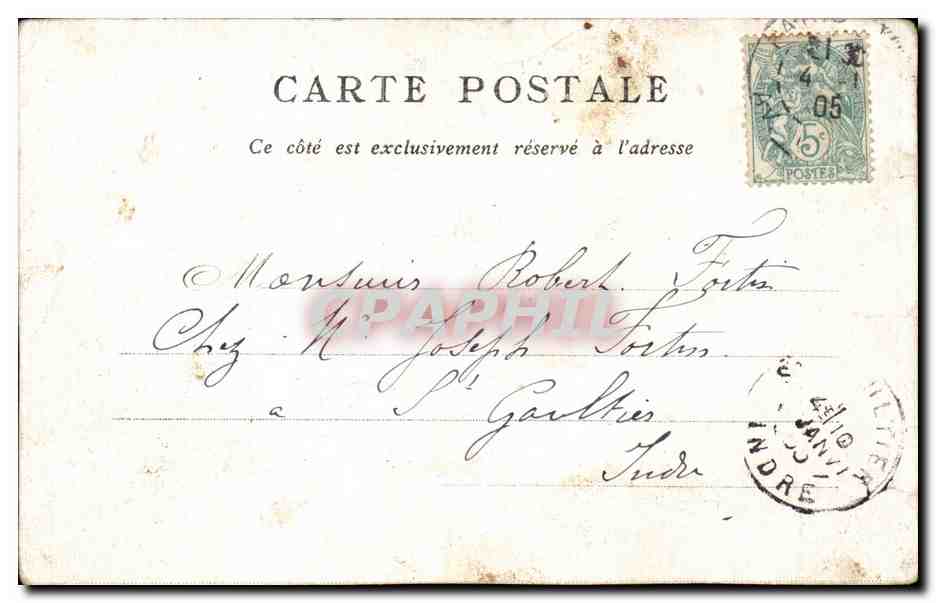 CARTE POSTALE
Ce côté est exclusivement réservé à l'adresse
21
4 1
05
5c
POSTES
Monsieur Robert Fortin
Chez Mr Joseph Fortin
a St Gaultier
Indre
CPAPHIL
JANV
INDRE